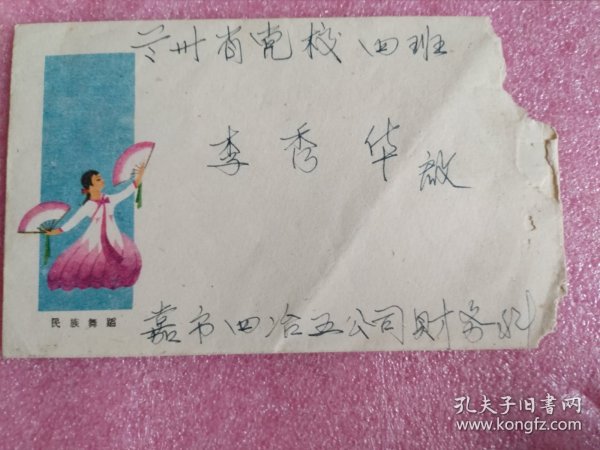 兰州省党校四班
李秀华啟
嘉市四冶五公司财务科
民族舞蹈
孔夫子旧书网
www.kongfz.com